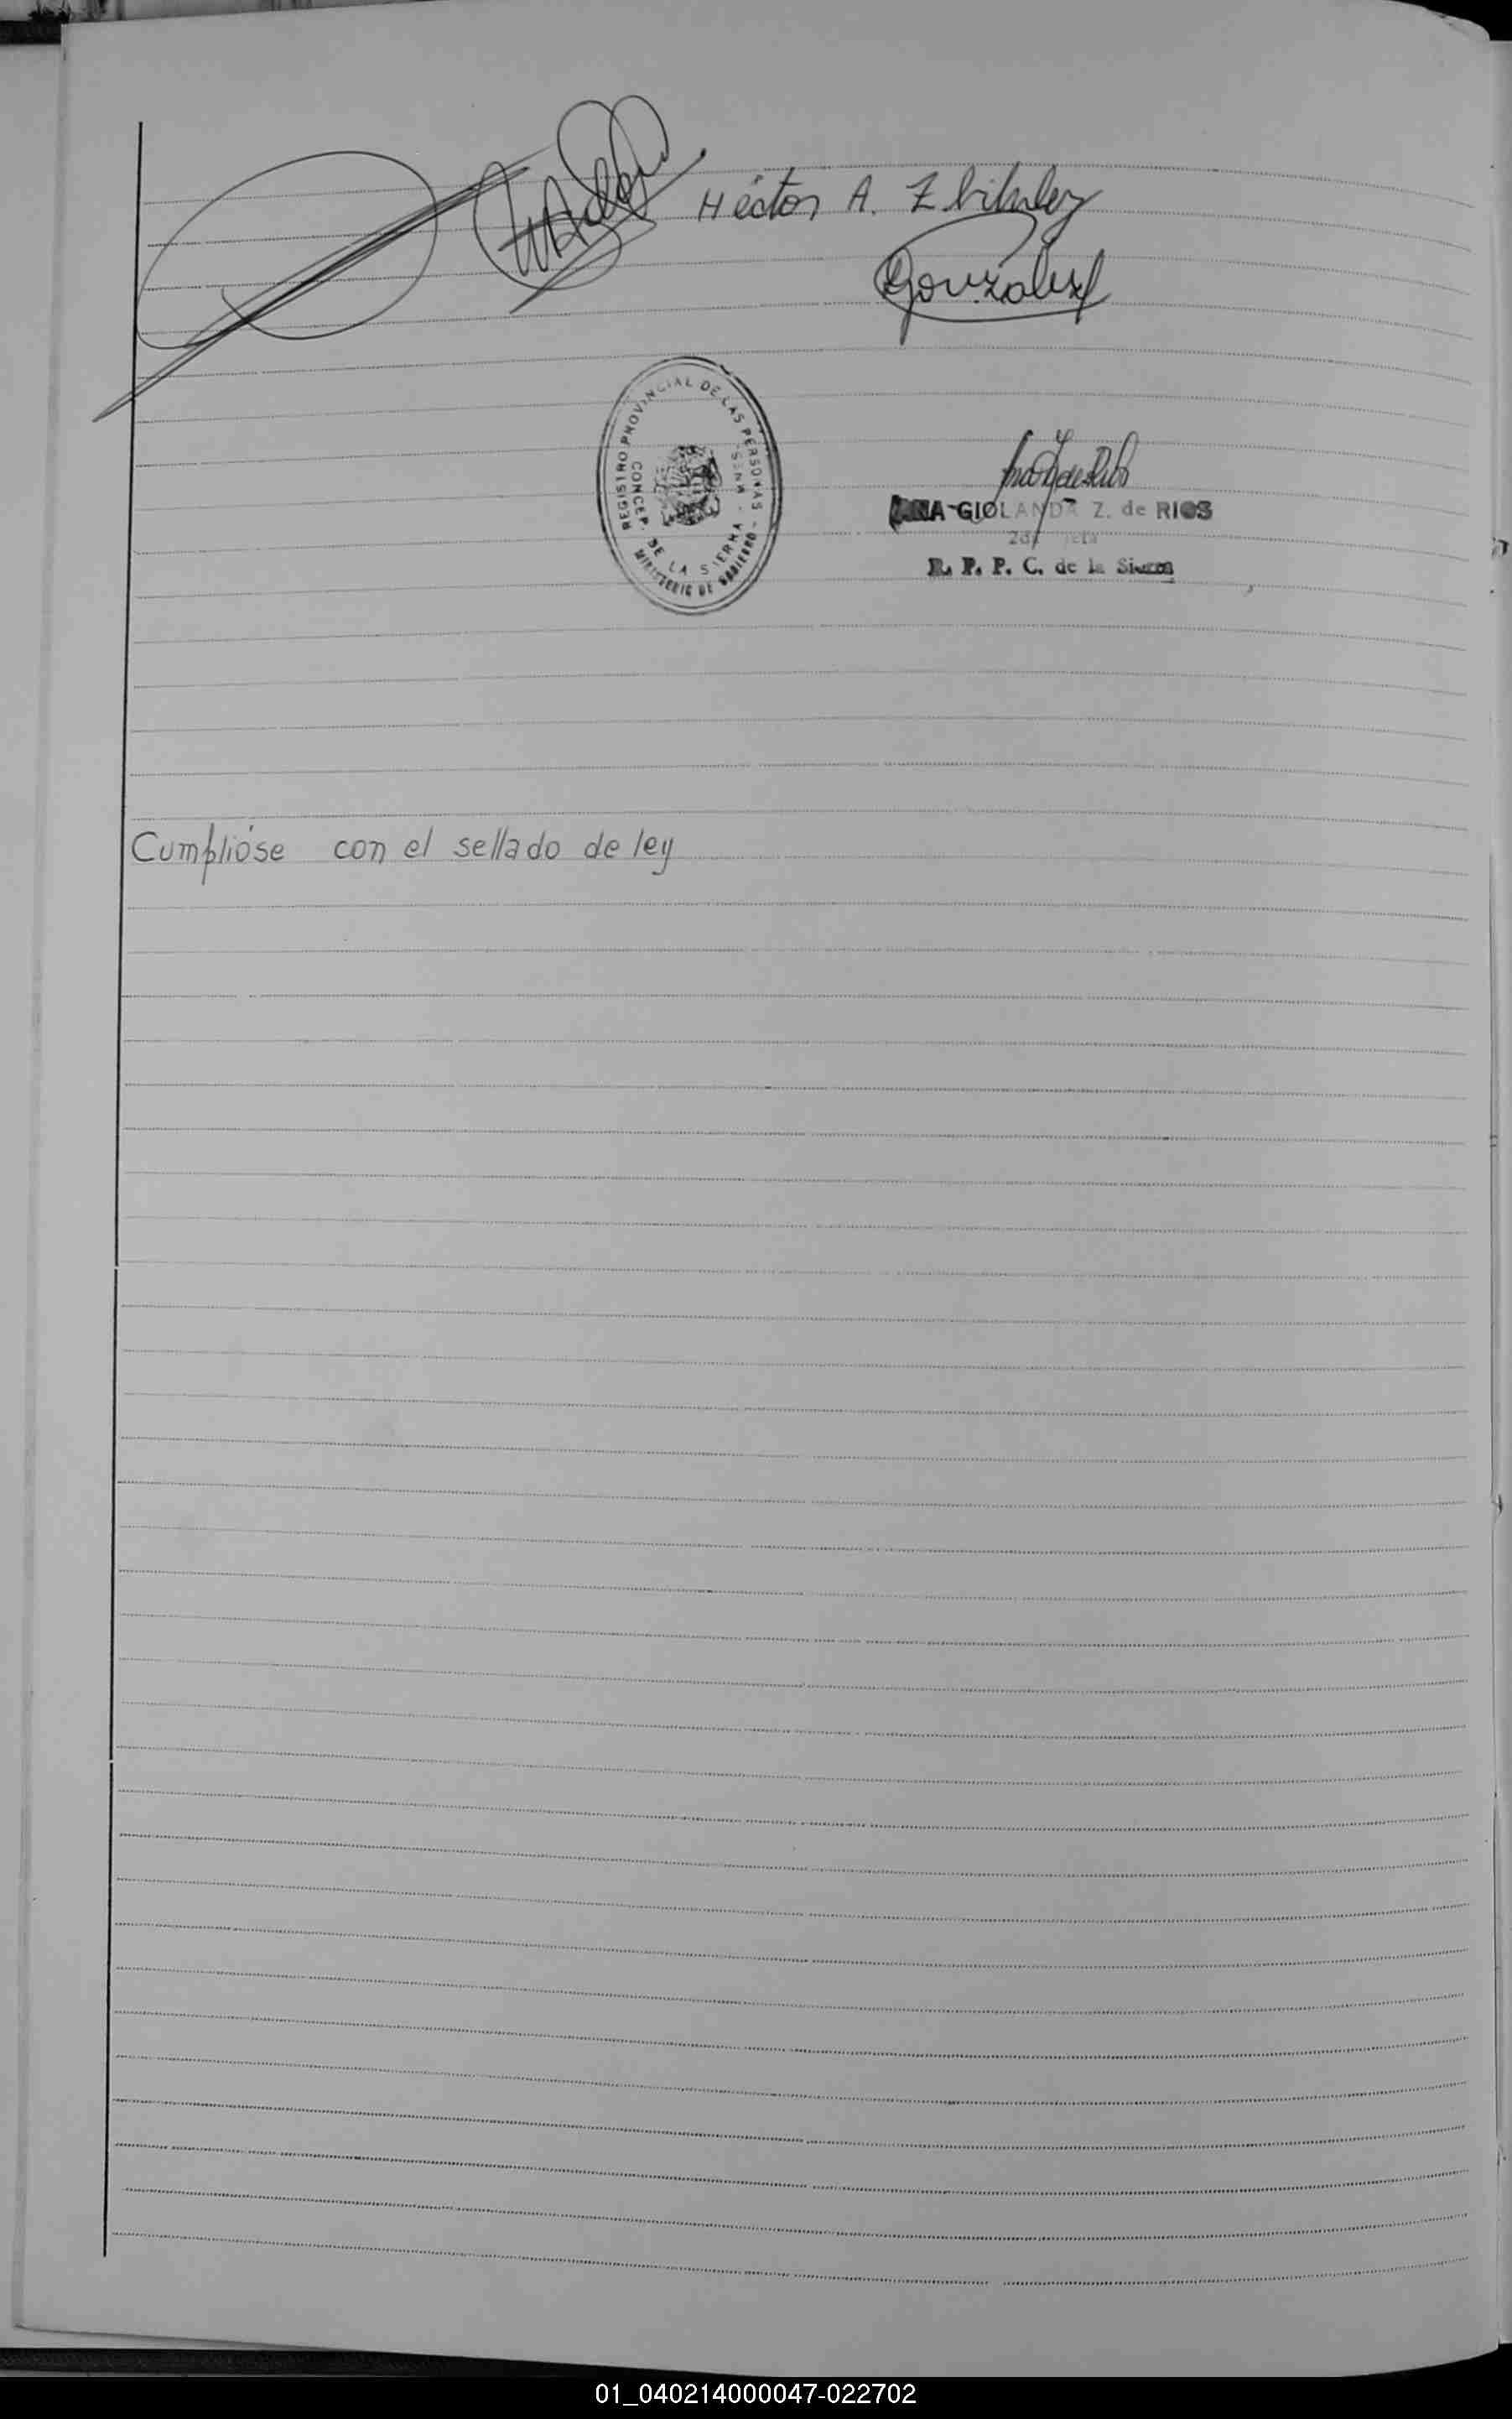 Héctor A.
González
REGISTRO PROVINCIAL DE LAS PERSONAS - MINISTERIO DE GOBIERNO
CONCEP. DE LA SIERRA - MNES.
ANA GIOLANDA Z. de RIOS
R. P. P. C. de la Sierra
Cumplióse con el sellado de ley
01_040214000047-022702